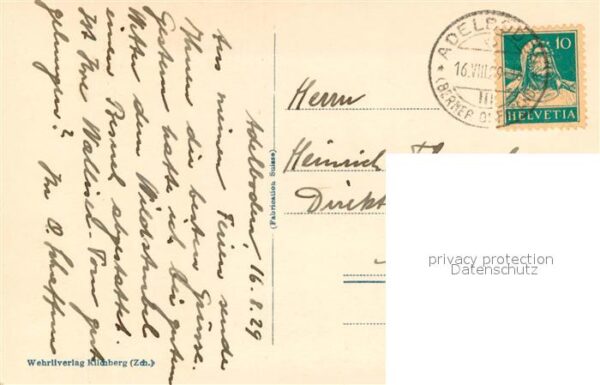 Adelboden, 16.8.29
Aus meinen Ferien sende
Ihnen die besten Grüsse.
Gestern hatte ich bei gutem
Wetter dem Wildstrubel
einen Besuch abgestattet.
Ist Ihre Walliser-Tour gut
gelungen? Ihr O. Schaffner
(Fabrication Suisse)
Wehrliverlag Kilchberg (Zch.)
ADELBODEN
16.VIII.29
(BERNER OBERLAND)
10
HELVETIA
Herrn
Heinrich
Direkt
privacy protection
Datenschutz